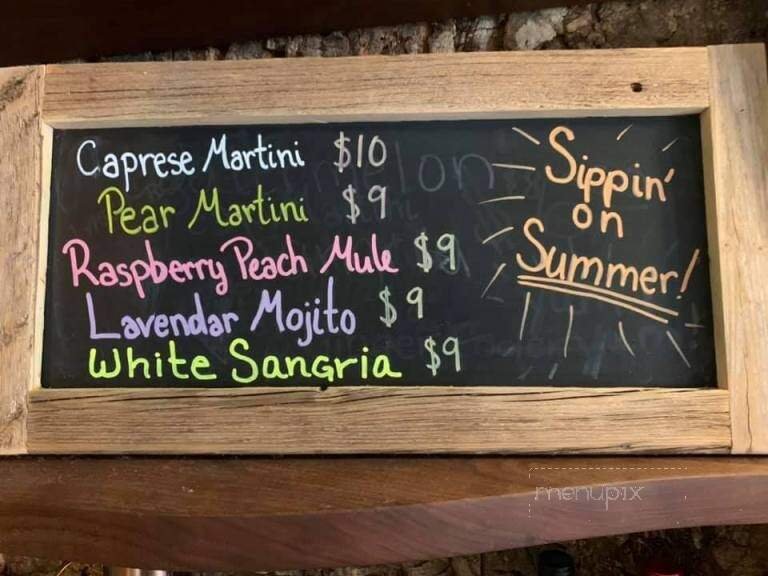 Caprese Martini $10
Pear Martini $9
Raspberry Peach Mule $9
Lavendar Mojito $9
White Sangria $9
Sippin'
on
Summer!
menupix